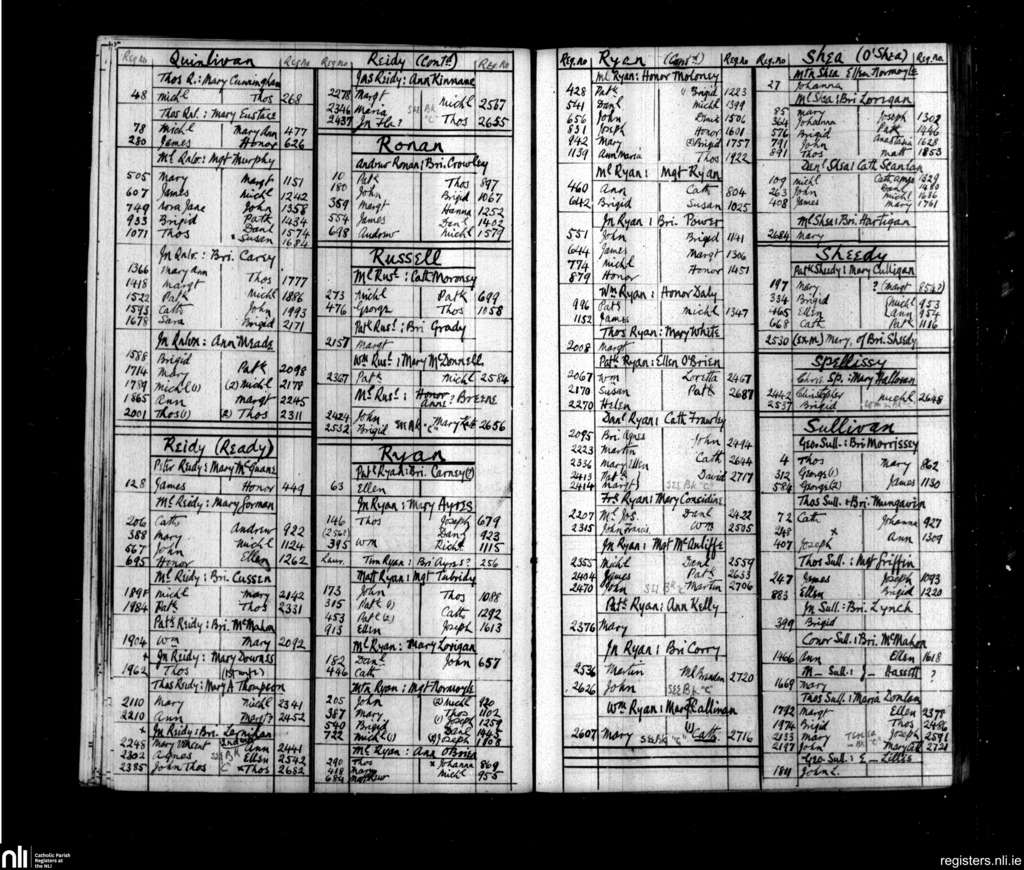 Reg no Quinlivan Reg no
Thos Q.: Mary Cunningham
48 Michl Thos 268
Thos Qnl.: Mary Eustace
78 Michl Mary Ann 477
280 James Honor 626
Ml Qnlv: Mgt Murphy
505 Mary Margt 1151
607 James Michl 1242
749 Nora Jane John 1358
933 Brigid Patk 1434
1071 Thos Danl 1574
Susan 1684
Jn Qnlv: Bri. Carey
1366 Mary Ann Thos 1777
1418 Margt Michl 1886
1522 Patk John 1993
1593 Cath Brigid 2171
1678 Sara
Jn Qnlvn: Ann Meade
1588 Brigid Patk 2098
1714 Mary
1789 Michl (1) (2) Michl 2178
1865 Ann Margt 2245
2001 Thos (1) (2) Thos 2311
Reidy (Ready)
Peter Reidy: Mary McGuane
128 James Honor 449
Ml Reidy: Mary Gorman
206 Cath Andrew 922
388 Mary Michl 1124
567 John Ellen 1262
695 Honor
Ml Reidy: Bri. Cussen
1898 Michl Mary 2142
1984 Patk Thos 2331
Patk Reidy: Bri. McMahon
1904 Wm Mary 2092
+ Jn Reidy: Mary Downes
1962 Thos (1st wife)
Thos Reidy: Mary A Thompson
2110 Mary Michl 2341
2210 Ann Margt? 2452
+ Jn Reidy: Bri. Lernihan
2248 Mary Vincent Ann 2441
2302 Agnes Ellen 2542
2385 John Thos Thos 2682
Reg no Reidy (Contd) Reg No
Jas Reidy: Ann Kinnane
2278 Margt Michl 2567
2346 Maria SEE BK "C" Thos 2655
2437 Jn Flr?
Ronan
Andrew Ronan: Bri. Crowley
10 Patk Thos 897
180 John Brigid 1067
359 Margt Hanna 1252
554 James Danl 1402
698 Andrew Michl 1579
Russell
Ml Rusl: Cath Moroney
273 Michl Patk 699
476 George Thos 1058
Patk Rusl: Bri Grady
2157 Margt
Wm Rusl: Mary McDonnell
2367 Patk Michl 2584
Ml Rusl: Honor? Anne? Breene
2424 John Mary Kate 2656
2532 Brigid SEE BK "C"
Ryan
Patk Ryan: Bri. Carney (?)
63 Ellen
Jn Ryan: Mary Ayres
146 Thos Joseph 679
(256) Danl 923
395 Wm Richd 1115
Tim Ryan: Bri Ayres? 256
Matt Ryan: Mgt Tubridy
173 John Thos 1088
315 Patk (1) Cath 1292
453 Patk (2) Joseph 1613
913 Ellen
Ml Ryan: Mary Lorigan
182 Danl John 657
446 Cath
Mtn Ryan: Mgt Normoyle
205 John (2) Michl 920
387 Mary Thos 1102
540 Brigid (1) Joseph 1259
722 Michl (1) Danl 1445
(2) Joseph 1808
Ml Ryan: Ann O'Brien
290 Thos Johanna 809
418 Mary Michl 955
684 Matthew
Reg.no Ryan (Contd) Reg.no
Ml Ryan: Honor Moloney
428 Patk Brigid 1223
541 Danl Michl 1399
656 John Danl 1506
831 Joseph Honor 1601
942 Mary Brigid 1757
1139 Ann Maria Thos 1922
Ml Ryan: Mgt Ryan
460 Ann Cath 804
642 Brigid Susan 1025
Jn Ryan: Bri. Power
551 John Brigid 1141
644 James Margt 1306
774 Michl Honor 1451
879 Honor
Wm Ryan: Honor Daly
996 Patk Michl 1347
1152 James
Thos Ryan: Mary White
2008 Margt
Patk Ryan: Ellen O'Brien
2067 Wm Loretta 2467
2170 Susan Patk 2687
2270 Helen
Danl Ryan: Cath Frawley
2095 Bri Agnes John 2494
2223 Martin Cath 2644
2336 Mary Ellen David 2717
2413 Patk
2414 Margt SEE BK "C"
Frs Ryan: Mary Considine
2207 Ml Jos. Danl 2422
2315 John Francis Wm 2505
Jn Ryan: Mgt McAuliffe
2355 Michl Danl 2559
2404 James Patk 2633
2470 John SEE BK "C" Martin 2706
Patk Ryan: Ann Kelly
2376 Mary
Jn Ryan: Bri Corry
2536 Martin Ml Brendan 2720
2626 John SEE BK "C"
Wm Ryan: Mary Callinan
2607 Mary SEE BK "C" Cath 2716
Reg.no. Shea (O'Shea) Reg.no.
Mtn Shea Ellen Normoyle
27 Johanna
Ml Shea: Bri Lorigan
85 Mary Joseph 1302
364 Johanna Patk 1446
576 Brigid Anastasia 1628
791 John Matt 1853
891 Thos
Danl Shea: Cath Scanlan
109 Michl Cath Agnes 1329
263 John Danl 1480
408 James Michl 1636
Mary 1761
Ml Shea: Bri. Hartigan
2684 Mary
Sheedy
Patk Sheedy: Mary Culligan
197 Mary ? (Margt 854?)
334 Brigid Michl 953
465 Ellen Ann 954
668 Cath Patk 1186
2530 (Ex.M) Mary, of Bri Sheedy
Spellissy
Chris. Sp.: Mary Halloran
2442 Christopher Michl 2648
2537 Brigid
Sullivan
Geo Sull.: Bri Morrissey
4 Thos Mary 862
312 George (1) James 1130
584 George (2)
Thos Sull: Bri. Mungovin
72 Cath Johanna 927
248 x Ann 1309
407 Joseph
Thos Sull: Mgt Griffin
247 James Joseph 1093
883 Ellen Brigid 1220
Jn Sull: Bri. Lynch
399 Brigid
Conor Sull: Bri. McMahon
1466 Ann Ellen 1618
M— Sull: } Bassett ?
1669 Mary
Thos Sull: Maria Donlan
1792 Margt Ellen 2378
1974 Brigid Thos 2486
2133 Mary Joseph 2591
2197 John Mary Cath 2721
Geo Sull: E— Lillis
1811 John L.
nli Catholic Parish
Registers at
the NLI
registers.nli.ie